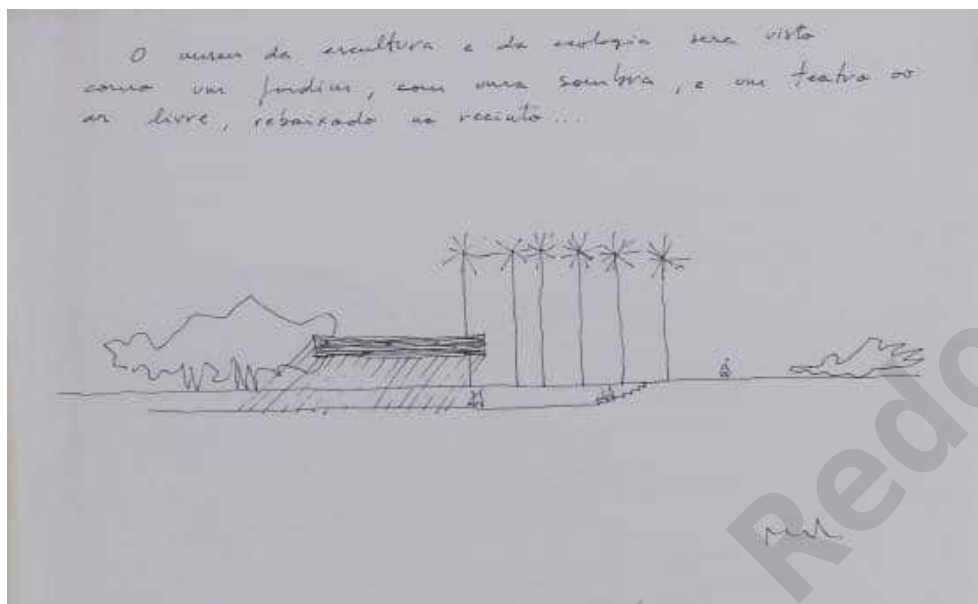 O museu da escultura e da ecologia será visto
como um jardim, com uma sombra, e um teatro ao
ar livre, rebaixado no recinto...
Redo